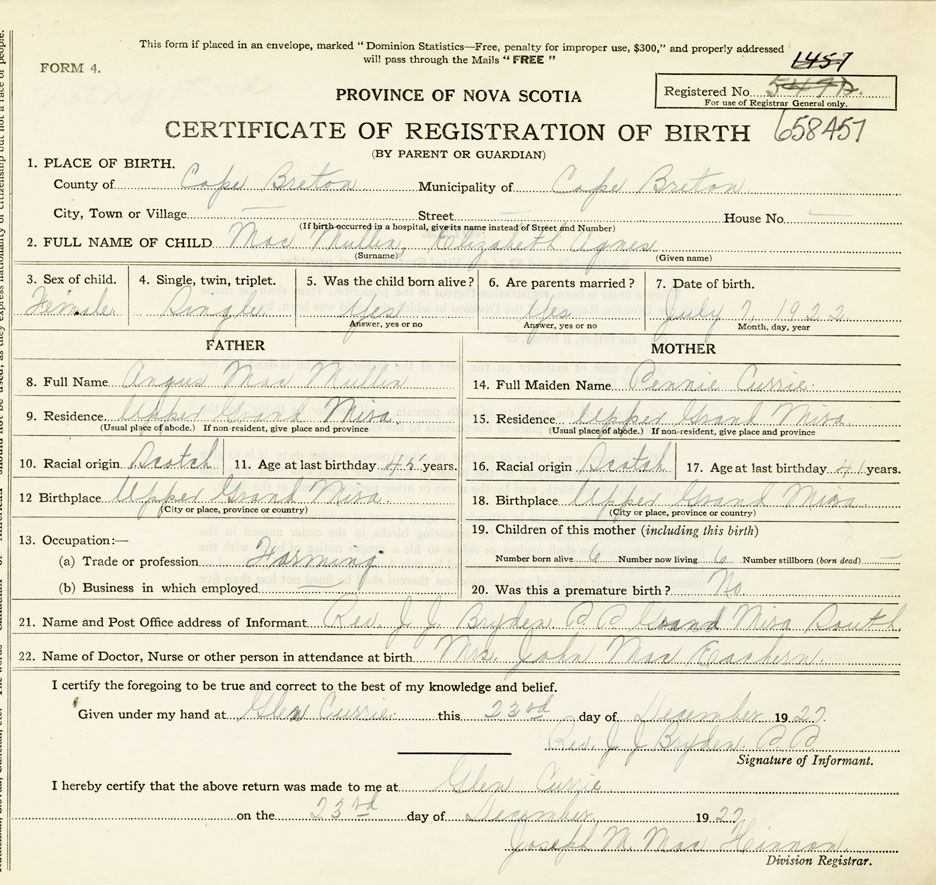 This form if placed in an envelope, marked "Dominion Statistics—Free, penalty for improper use, $300," and properly addressed
will pass through the Mails "FREE"
FORM 4.
1457
Registered No.
For use of Registrar General only.
PROVINCE OF NOVA SCOTIA
CERTIFICATE OF REGISTRATION OF BIRTH 658457
(BY PARENT OR GUARDIAN)
1. PLACE OF BIRTH.
County of Cape Breton Municipality of Cape Breton
City, Town or Village — Street — House No. —
(If birth occurred in a hospital, give its name instead of Street and Number)
2. FULL NAME OF CHILD Mac Mullin, Elizabeth Agnes
(Surname) (Given name)
3. Sex of child. 4. Single, twin, triplet. 5. Was the child born alive? 6. Are parents married? 7. Date of birth.
Female Single Yes Yes July 7, 1922
Answer, yes or no Answer, yes or no Month, day, year
FATHER MOTHER
8. Full Name Angus Mac Mullin 14. Full Maiden Name Pennie Currie
9. Residence Upper Grand Mira 15. Residence Upper Grand Mira
(Usual place of abode.) If non-resident, give place and province (Usual place of abode.) If non-resident, give place and province
10. Racial origin Scotch 11. Age at last birthday 45 years. 16. Racial origin Scotch 17. Age at last birthday 41 years.
12 Birthplace Upper Grand Mira 18. Birthplace Upper Grand Mira
(City or place, province or country) (City or place, province or country)
13. Occupation:— 19. Children of this mother (including this birth)
(a) Trade or profession Farming Number born alive 6 Number now living 6 Number stillborn (born dead) —
(b) Business in which employed 20. Was this a premature birth? No
21. Name and Post Office address of Informant Rev. J. J. Bryden P.P. Grand Mira South
22. Name of Doctor, Nurse or other person in attendance at birth Mrs. John Mac Eachern.
I certify the foregoing to be true and correct to the best of my knowledge and belief.
Given under my hand at Glen Currie this 23rd day of December 1927
Rev. J. J. Bryden P.P.
Signature of Informant.
I hereby certify that the above return was made to me at Glen Currie
on the 23rd day of December 1927
Joseph M. Mac Kinnon
Division Registrar.